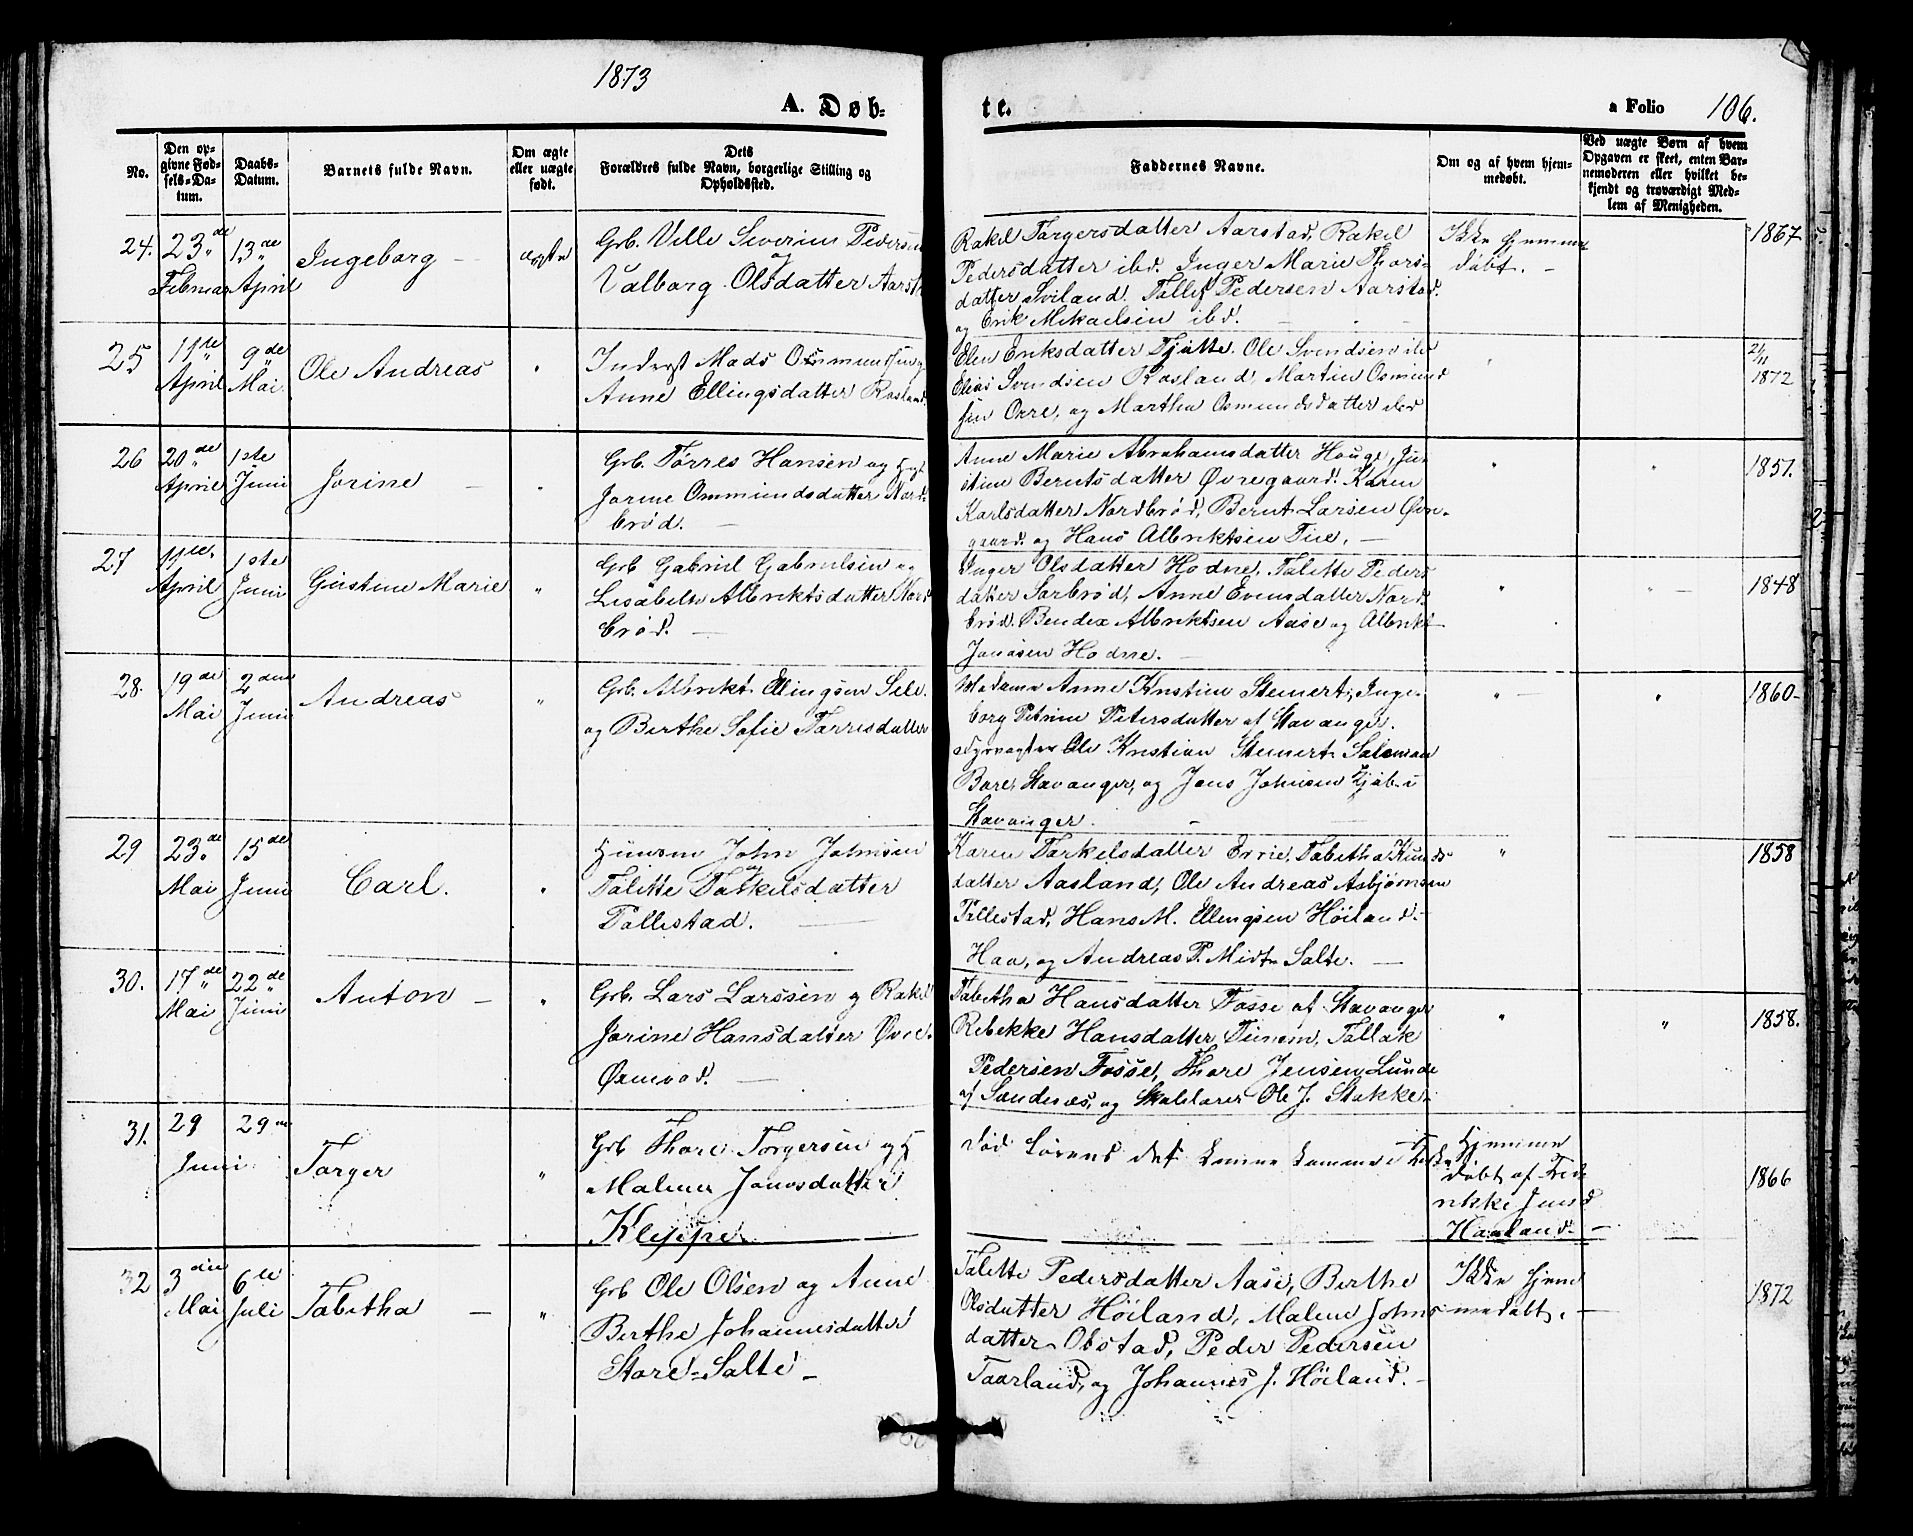 1873
A. Døb-
te.
a Folio 106.
No.
Den op-
givne Fød-
sels-Da-
tum.
Daabs-
Datum.
Barnets fulde Navn.
Om ægte
eller uægte
født.
Dets
Forældres fulde Navn, borgerlige Stilling og
Opholdssted.
Faddernes Navne.
Om og af hvem hjem-
medøbt.
Ved uægte Børn af hvem
Opgaven er skeet, enten Bar-
nemoderen eller hvilket be-
kjendt og troværdigt Med-
lem af Menigheden.
24. 23de Februar
13de April
Ingeborg
ægte
Grb. Velle Severin Pedersen
og
Valborg Olsdatter Aarst
Rakel Torgersdatter Aarstad, Rakel
Pedersdatter ibd. Inger Marie Thors-
datter Sviland. Tollef Pedersen Aarstad.
og Erik Mikaelsen ibd.
Ikke hjemme
døbt.
1867
25 11te April
9de Mai
Ole Andreas
"
Inderst Mads Osmundsen og
Anne Ellingsdatter Rosland.
Elen Eriksdatter Tjøtte. Ole Svendsen ibd
Elias Svendsen Rosland, Martin Osmund
sen Orre, og Martha Osmundsdatter ibd
"
21/11
1872
26 20de April
1ste Juni
Jorine
"
Grb. Tørres Hansen og Hust
Jorine Ommundsdatter Nord-
brød.
Anne Marie Abrahamsdatter Hauge, Ju-
stine Berntsdatter Øvregaard. Karen
Karlsdatter Nordbrød, Bernt Larsen Øvre-
gaard og Hans Albriktsen Tue.
"
"
1851.
27 11te April
1ste Juni
Gustine Marie
"
Grb Gabriel Gabrielsen og
Lisabeth Albriktsdatter Nord
brød.
Inger Olsdatter Hodne, Talette Peders
datter Sørbrød, Anne Evensdatter Nord
brød. Bendix Albriktsen Aase og Albrikt
Jonasen Hodne.
"
"
1848
28. 19de Mai
2den Juni
Andreas
"
Grb. Albrikt Ellingsen Sele
og Berthe Sofie Tørresdatter
Madame Anne Kristine Steinert, Inge-
borg Petrine Petersdatter af Stavanger.
Fyrvogter Ole Kristian Steinert Salomon
Bore, Stavanger, og Jens Johnsen Kjøb. i
Stavanger.
"
"
1860
29 23de Mai
15de Juni
Carl.
"
Huusm John Johnsen
og
Talette Torkelsdatter
Tollestad.
Karen Torkelsdatter Errie, Tabetha Knuds
datter Aasland, Ole Andreas Asbjørnsen
Tillestad, Hans M. Ellingsen Høiland-
Haa, og Andreas P. Midt Salte.
"
1858
30. 17de Mai
22de Juni
Anton
"
Grb. Lars Larssen og Rakel
Jorine Hansdatter Øvre-
Øxnevad.
Tabetha Hansdatter Fosse af Stavanger
Rebekke Hansdatter Tunem, Tallak
Pedersen Fosse, Thore Jensen Lunde
af Sandnæs, og Skolelærer Ole J. Stokke.
"
"
1858.
31. 29 Juni
29
Torger
"
Grb Thore Torgersen og H
Malene Jonasdatter
Kleppe
Død førend det kunne komme i Kirke
Hjemme
døbt af Fred
rikke Junsd
Haaland
1866
32 3die Mai
6te Juli
Tabitha
"
Grb Ole Olsen og Anne
Berthe Johannesdatter
Store-Salte
Talette Pedersdatter Aase, Berthe
Olsdatter Høiland, Malene Johns
datter Obstad, Peder Pedersen
Taarland, og Johannes J. Høiland.
Ikke hjem
medøbt.
1872